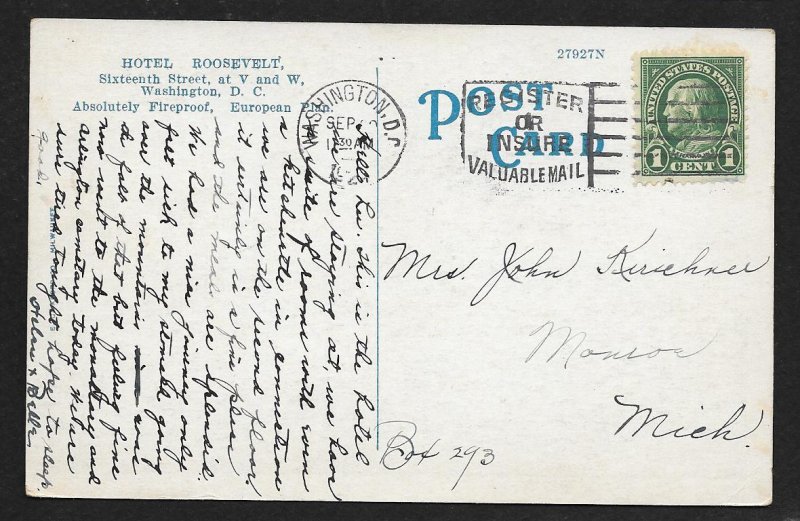 HOTEL ROOSEVELT,
Sixteenth Street, at V and W,
Washington, D. C.
Absolutely Fireproof, European Plan.
27927N
POST
CARD
WASHINGTON, D.C.
SEP
1930
REGISTER
OR
INSURE
VALUABLE MAIL
UNITED STATES POSTAGE
FRANKLIN
1 CENT 1
Hello Lu. This is the hotel
we are staying at, we have
a suite of rooms with even
a kitchenette in connection
we are on the second floor,
it certainly is a fine place
and the meals are splendid.
We had a nice journey only
felt sick to my stomach going
over the mountains was
full of that but feeling fine
now went to the monastery and
arlington cemetery today. We are
sure tired tonight hope to sleep
good.
Helen & Bill
Mrs. John Kirschner
Monroe
Mich.
Box 293